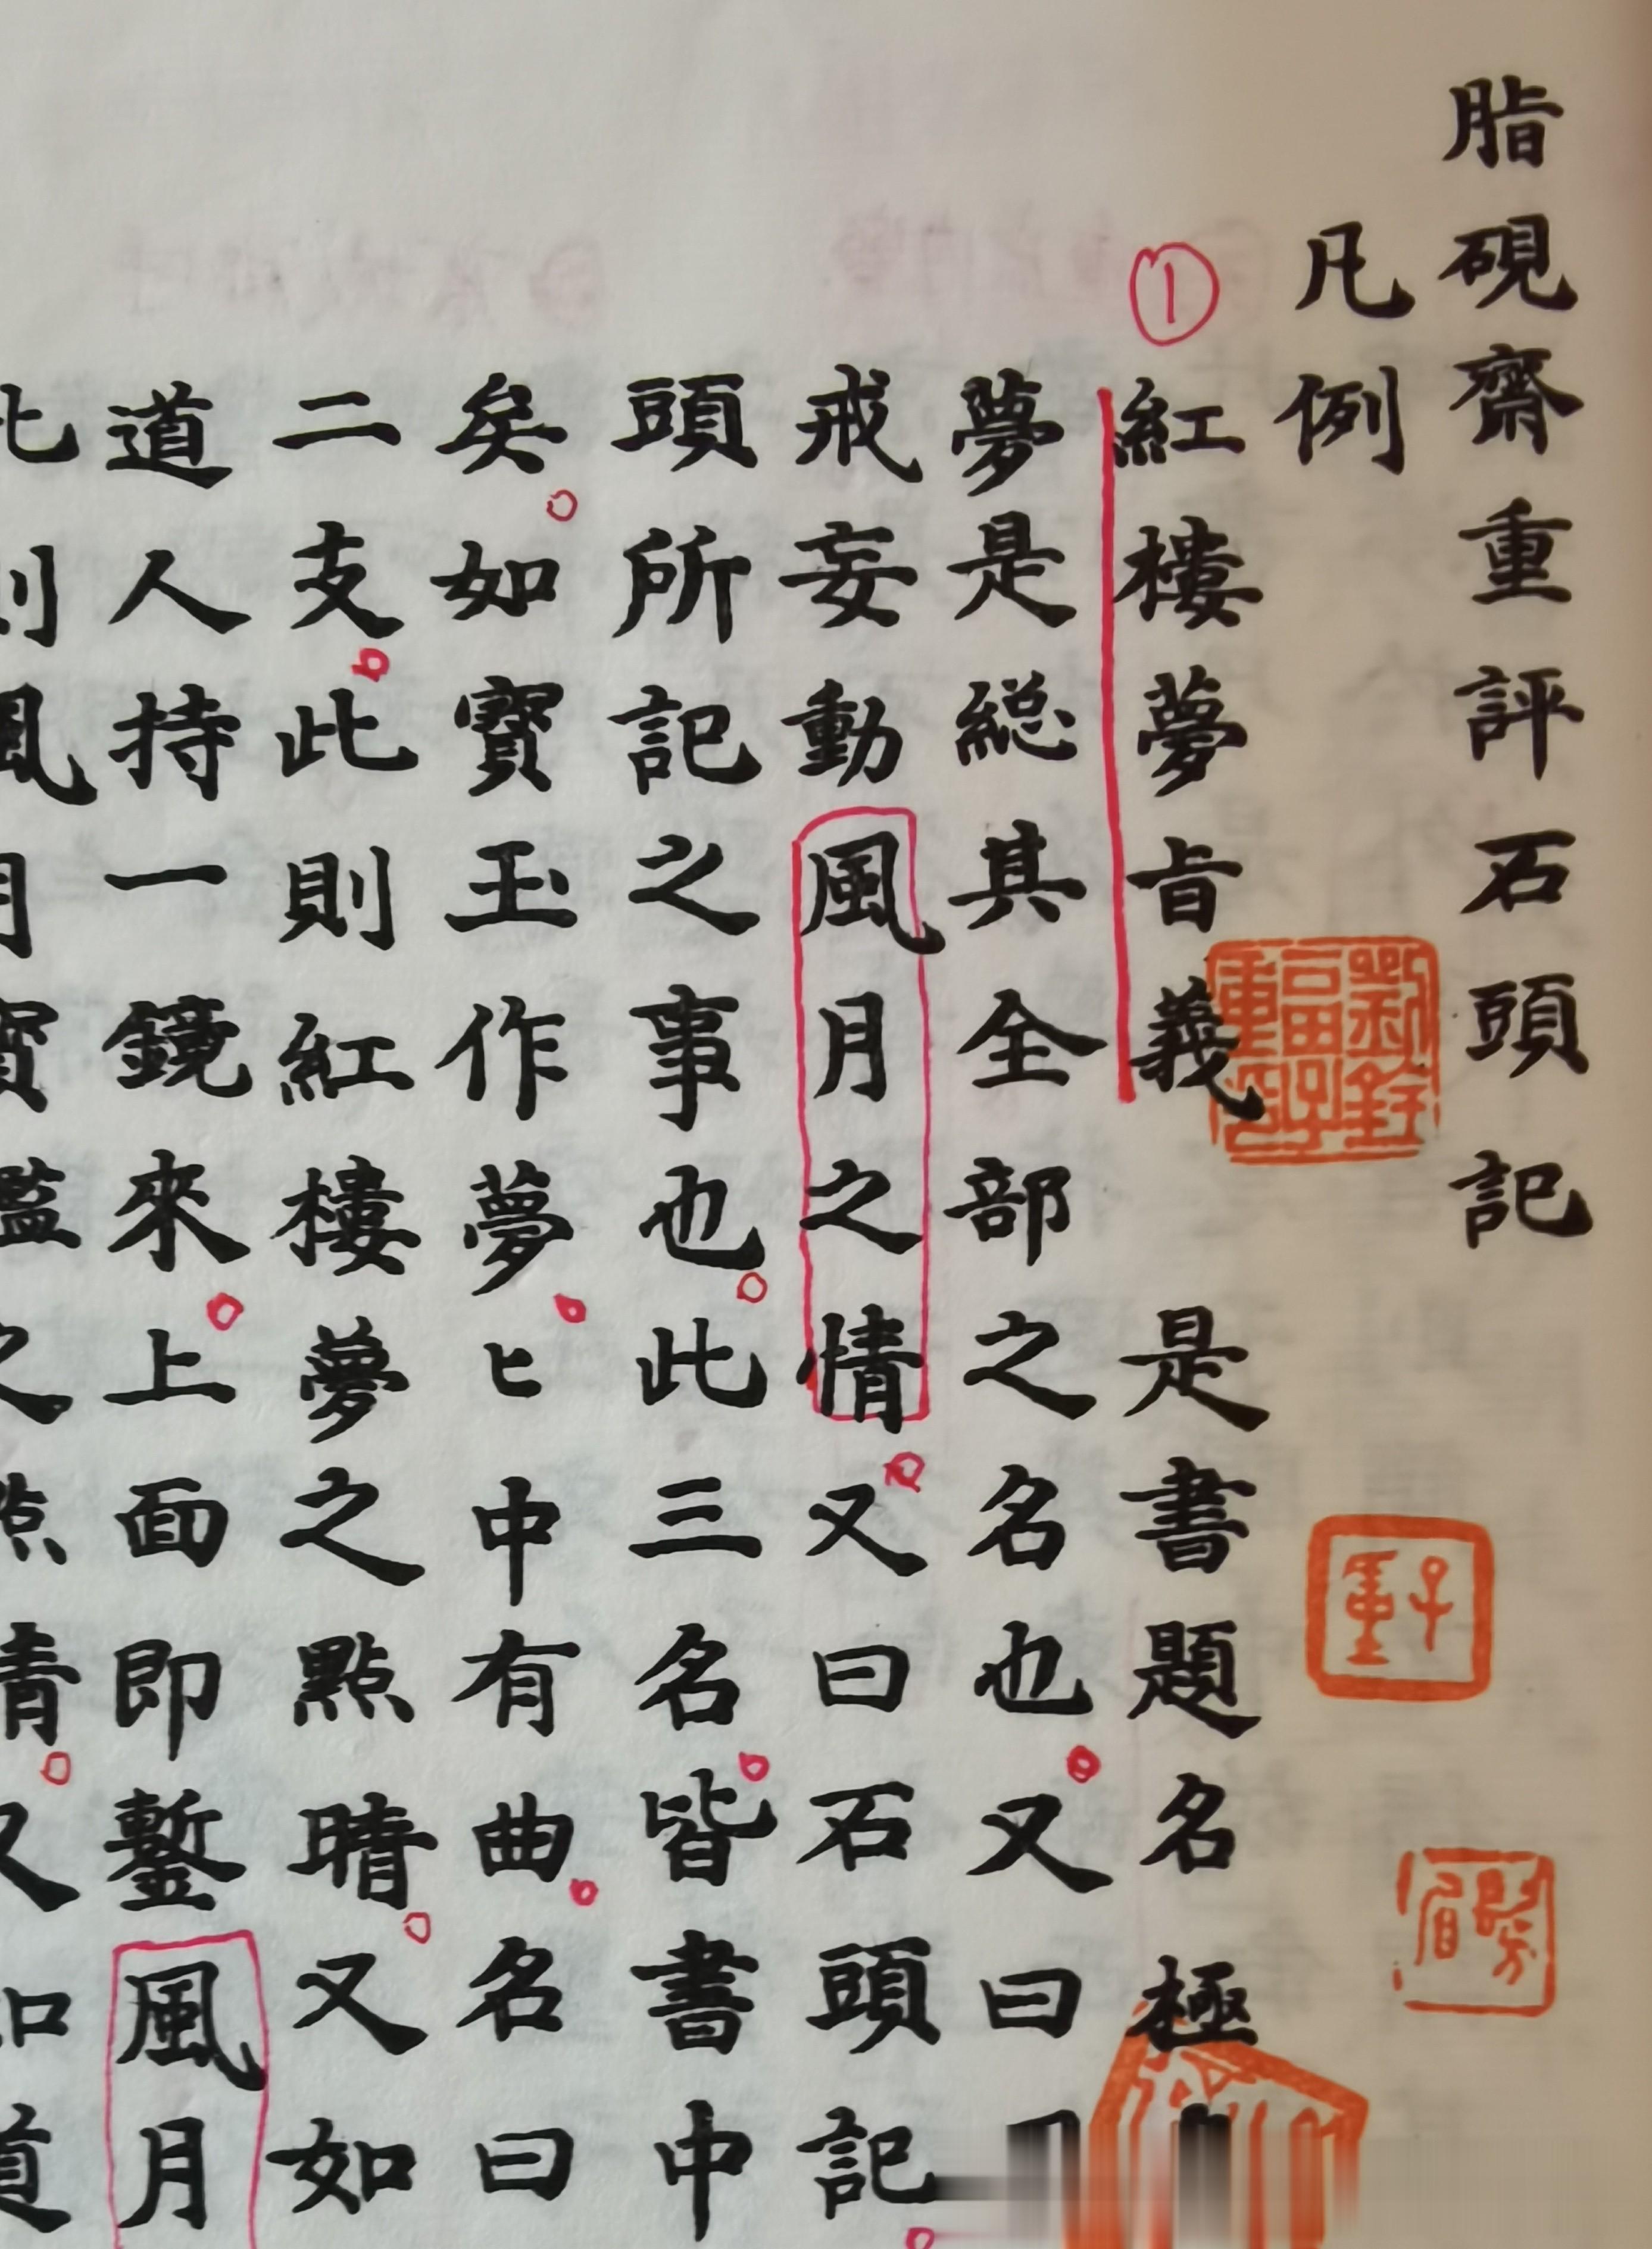 脂硯齋重評石頭記
凡例
①
紅樓夢旨義 是書題名極
夢是総其全部之名也又曰
戒妄動風月之情又曰石頭記
頭所記之事也此三名皆書中
矣如寳玉作夢ヒ中有曲名曰
二支此則紅樓夢之點晴又如
道人持一鏡來上面即鏨風月
劉銓畐子重印
子重
髣眉